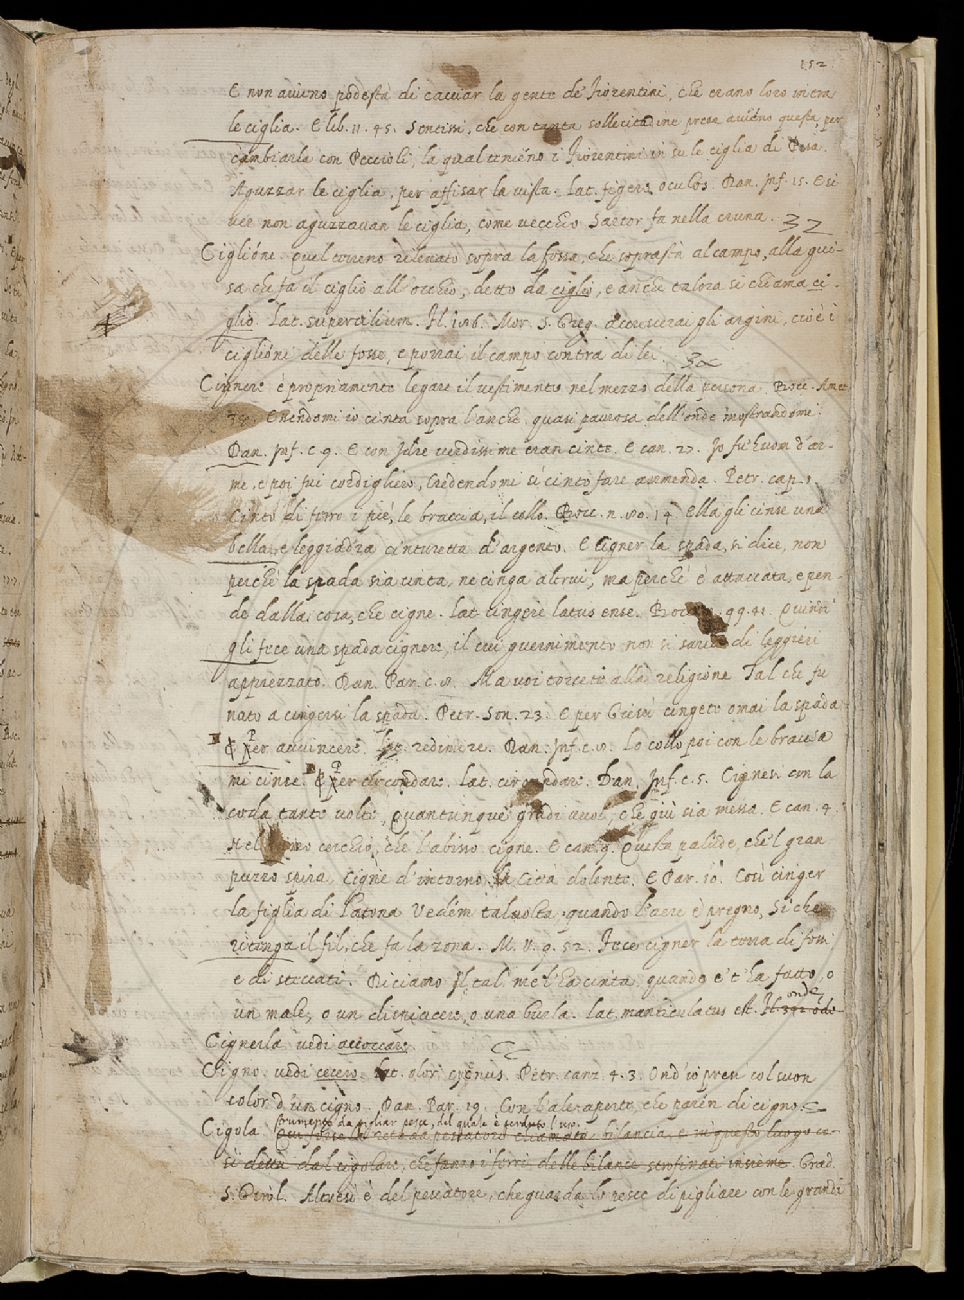 152
E non aviéno podestà di cacciar la gente de' Fiorentini, che erano loro in tra
le ciglia. E lib. 11. 45. Sentissi, che con tanta sollecitudine prese aviéno questa, per
cambiarla con Peccioli, la qual teniéno i Fiorentini in su le ciglia di Pisa.
Aguzzar le ciglia, per affisar la vista. Lat. figere oculos. Dan. Inf. 15. E sì
ver noi aguzzavan le ciglia, come vecchio sartor fa nella cruna.
Ciglióne. Quel terreno rilevato sopra la fossa, che soprastà al campo, alla gui-
sa che fa il ciglio all'occhio, detto da ciglio, e anche talora si chiama ci-
glio. Lat. supercilium. Mor. S. Greg. accrescerai gli argini, cioè i
ciglióni delle fosse, e porrai il campo contra di lei.
Cignere è propriamente legare il vestimento nel mezzo della persona. Bocc. Amet.
E vendomi io cinta sopra l'anche quasi paurosa dell'onde mostrandomi.
Dan. Inf. c. 9. E con Idre verdissime eran cinte. E can. 27. Io fu' huom d'ar-
me, e poi fui cordigliero, Credendomi sì cinto fare ammenda. Petr. cap.
Cinto di ferro i piè, le braccia, il collo. Bocc. n. 80. 14. Ella gli cinse una
bella, e leggiadra cinturetta d'argento. E cigner la spada, si dice, non
perché la spada sia cinta, né cinga altrui, ma perché è attaccata, e pen-
de dalla cosa, che cigne. Lat. cingere latus ense. Bocc. n. 99. 41. Quindi
gli fece una spada cignere, il cui guernimento non si saria di leggieri
apprezzato. Dan. Par. c. 8. Ma voi torcete alla religione Tal che fu
nato a cingersi la spada. Petr. Son. 23. E per Giesù cingete omai la spada
& Per avvincere. Lat. redimire. Dan. Inf. c. 8. Lo collo poi con le braccia
mi cinse. & Per circondare. Lat. circundare. Dan. Inf. c. 5. Cignesi con la
coda tante volte, Quantunque gradi vuol, che giù sia messa. E can. 4.
Nel primo cerchio, che l'abisso cigne. E can. 9. Questa palude, che 'l gran
puzzo spira, Cigne d'intorno la Città dolente. E Par. 10. Così cinger
la figlia di Latona Vedém talvolta, quando l'aere è pregno, Sì che
ritenga il fil, che fa la zona. M. V. 9. 52. Fece cigner la terra di fossi
e di steccati. Diciamo Il tal me l'ha cinta, quando e' t'ha fatto, o
un male, o un dispiacere, o una burla. Lat. manticulatus est.
onde
Cignerla vedi accoccare.
Cigno. vedi cecero. Lat. olor, cygnus. Petr. canz. 4. 3. Ond'io presi col suon
color d'un cigno. Dan. Par. 19. Con l'ale aperte, che parén di cigno.
strumento da pigliar pesce, del quale è perduto l'uso.
Cigola. Qui forse la rete da pescatore chiamata bilancia, e in questo luogo co-
sì detta dal cigolare, che fanno i ferri delle bilance strofinati insieme. Grad.
S. Girol. Altresì è del pescatore, che guarda lo pesce di pigliare con le grandi